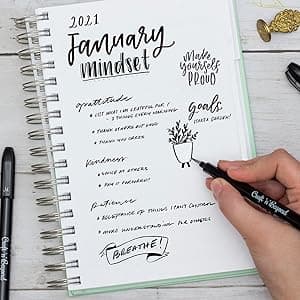 2021
January
mindset
Make
yourself
PROUD
gratitude
LIST WHAT I AM GRATEFUL FOR /
3 THINGS EVERY MORNING
THANK OTHERS OUT LOUD
THANK YOU CARDS
goals
(START A GARDEN!)
kindness
SMILE AT OTHERS
PAY IT FORWARD!
patience
ACCEPTANCE OF THINGS I CAN'T CONTROL
MORE UNDERSTANDING FOR OTHERS
BREATHE!
Craft 'n' Beyond
Craft 'n' Beyond